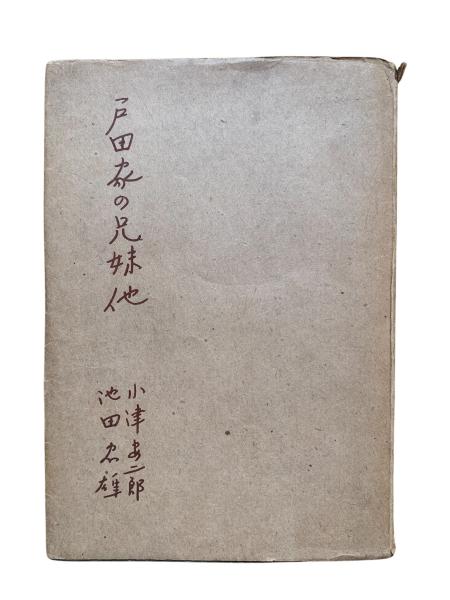 戸田家の兄妹他
小津安二郎
池田忠雄